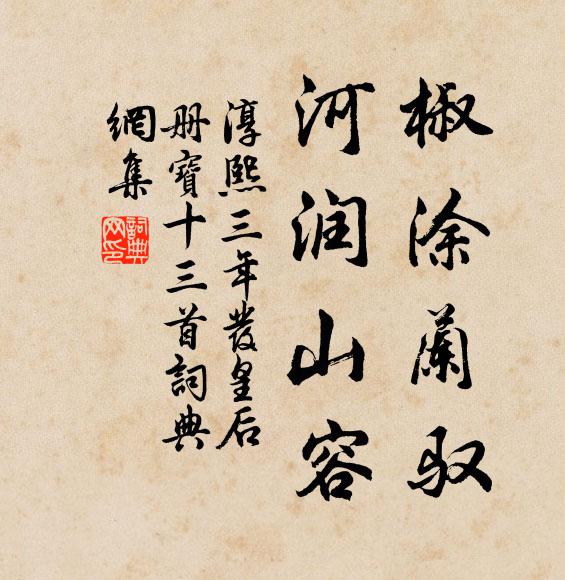 椒涂蘭驭
河润山容
淳熙三年發皇后
册寶十三首詞典
網集
詞典网印